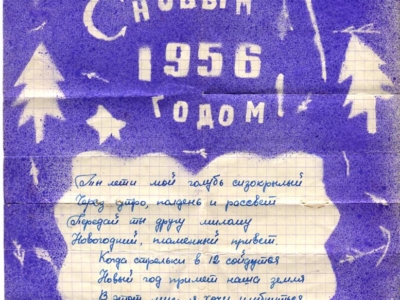 С НОВЫМ
1956
ГОДОМ!
Ты лети мой голубь сизокрылый
Через утро, полдень и рассвет
Передай ты другу милому
Новогодний, пламенный привет.
Когда стрелки в 12 сойдутся
Новый год примет наша земля
В этот миг я хочу